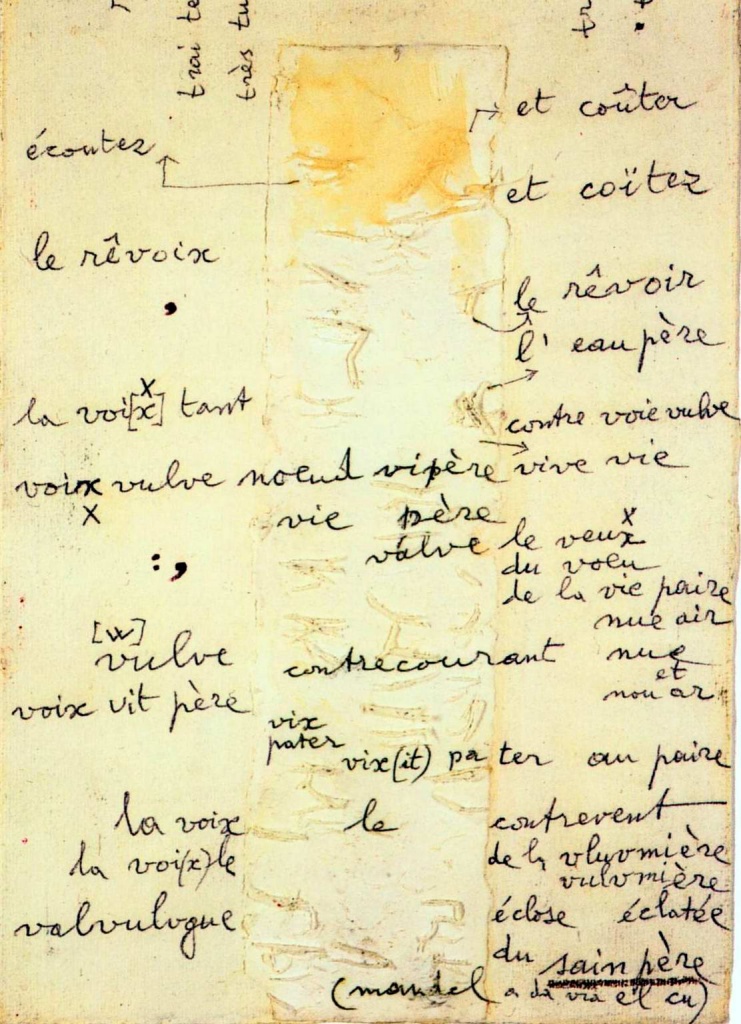 trai te
très tu
et coûter
écoutez
et coïtez
le rêvoix
,
le rêvoir
l' eau père
x
la voi[x] tant
contre voie vulve
voix vulve noeud vipère vive vie
x
vie père
valve
x
le veux
du voeu
:,
de la vie paire
nue air
[w]
vulve
contrecourant
nue
et
nou ar
voix vit père
vix
pater
vix(it) pa ter au paire
la voix le contrevent
la voi(x)le
de la vluvmière
vulvmière
valvulvgue
éclose éclatée
du sain père
(mandel